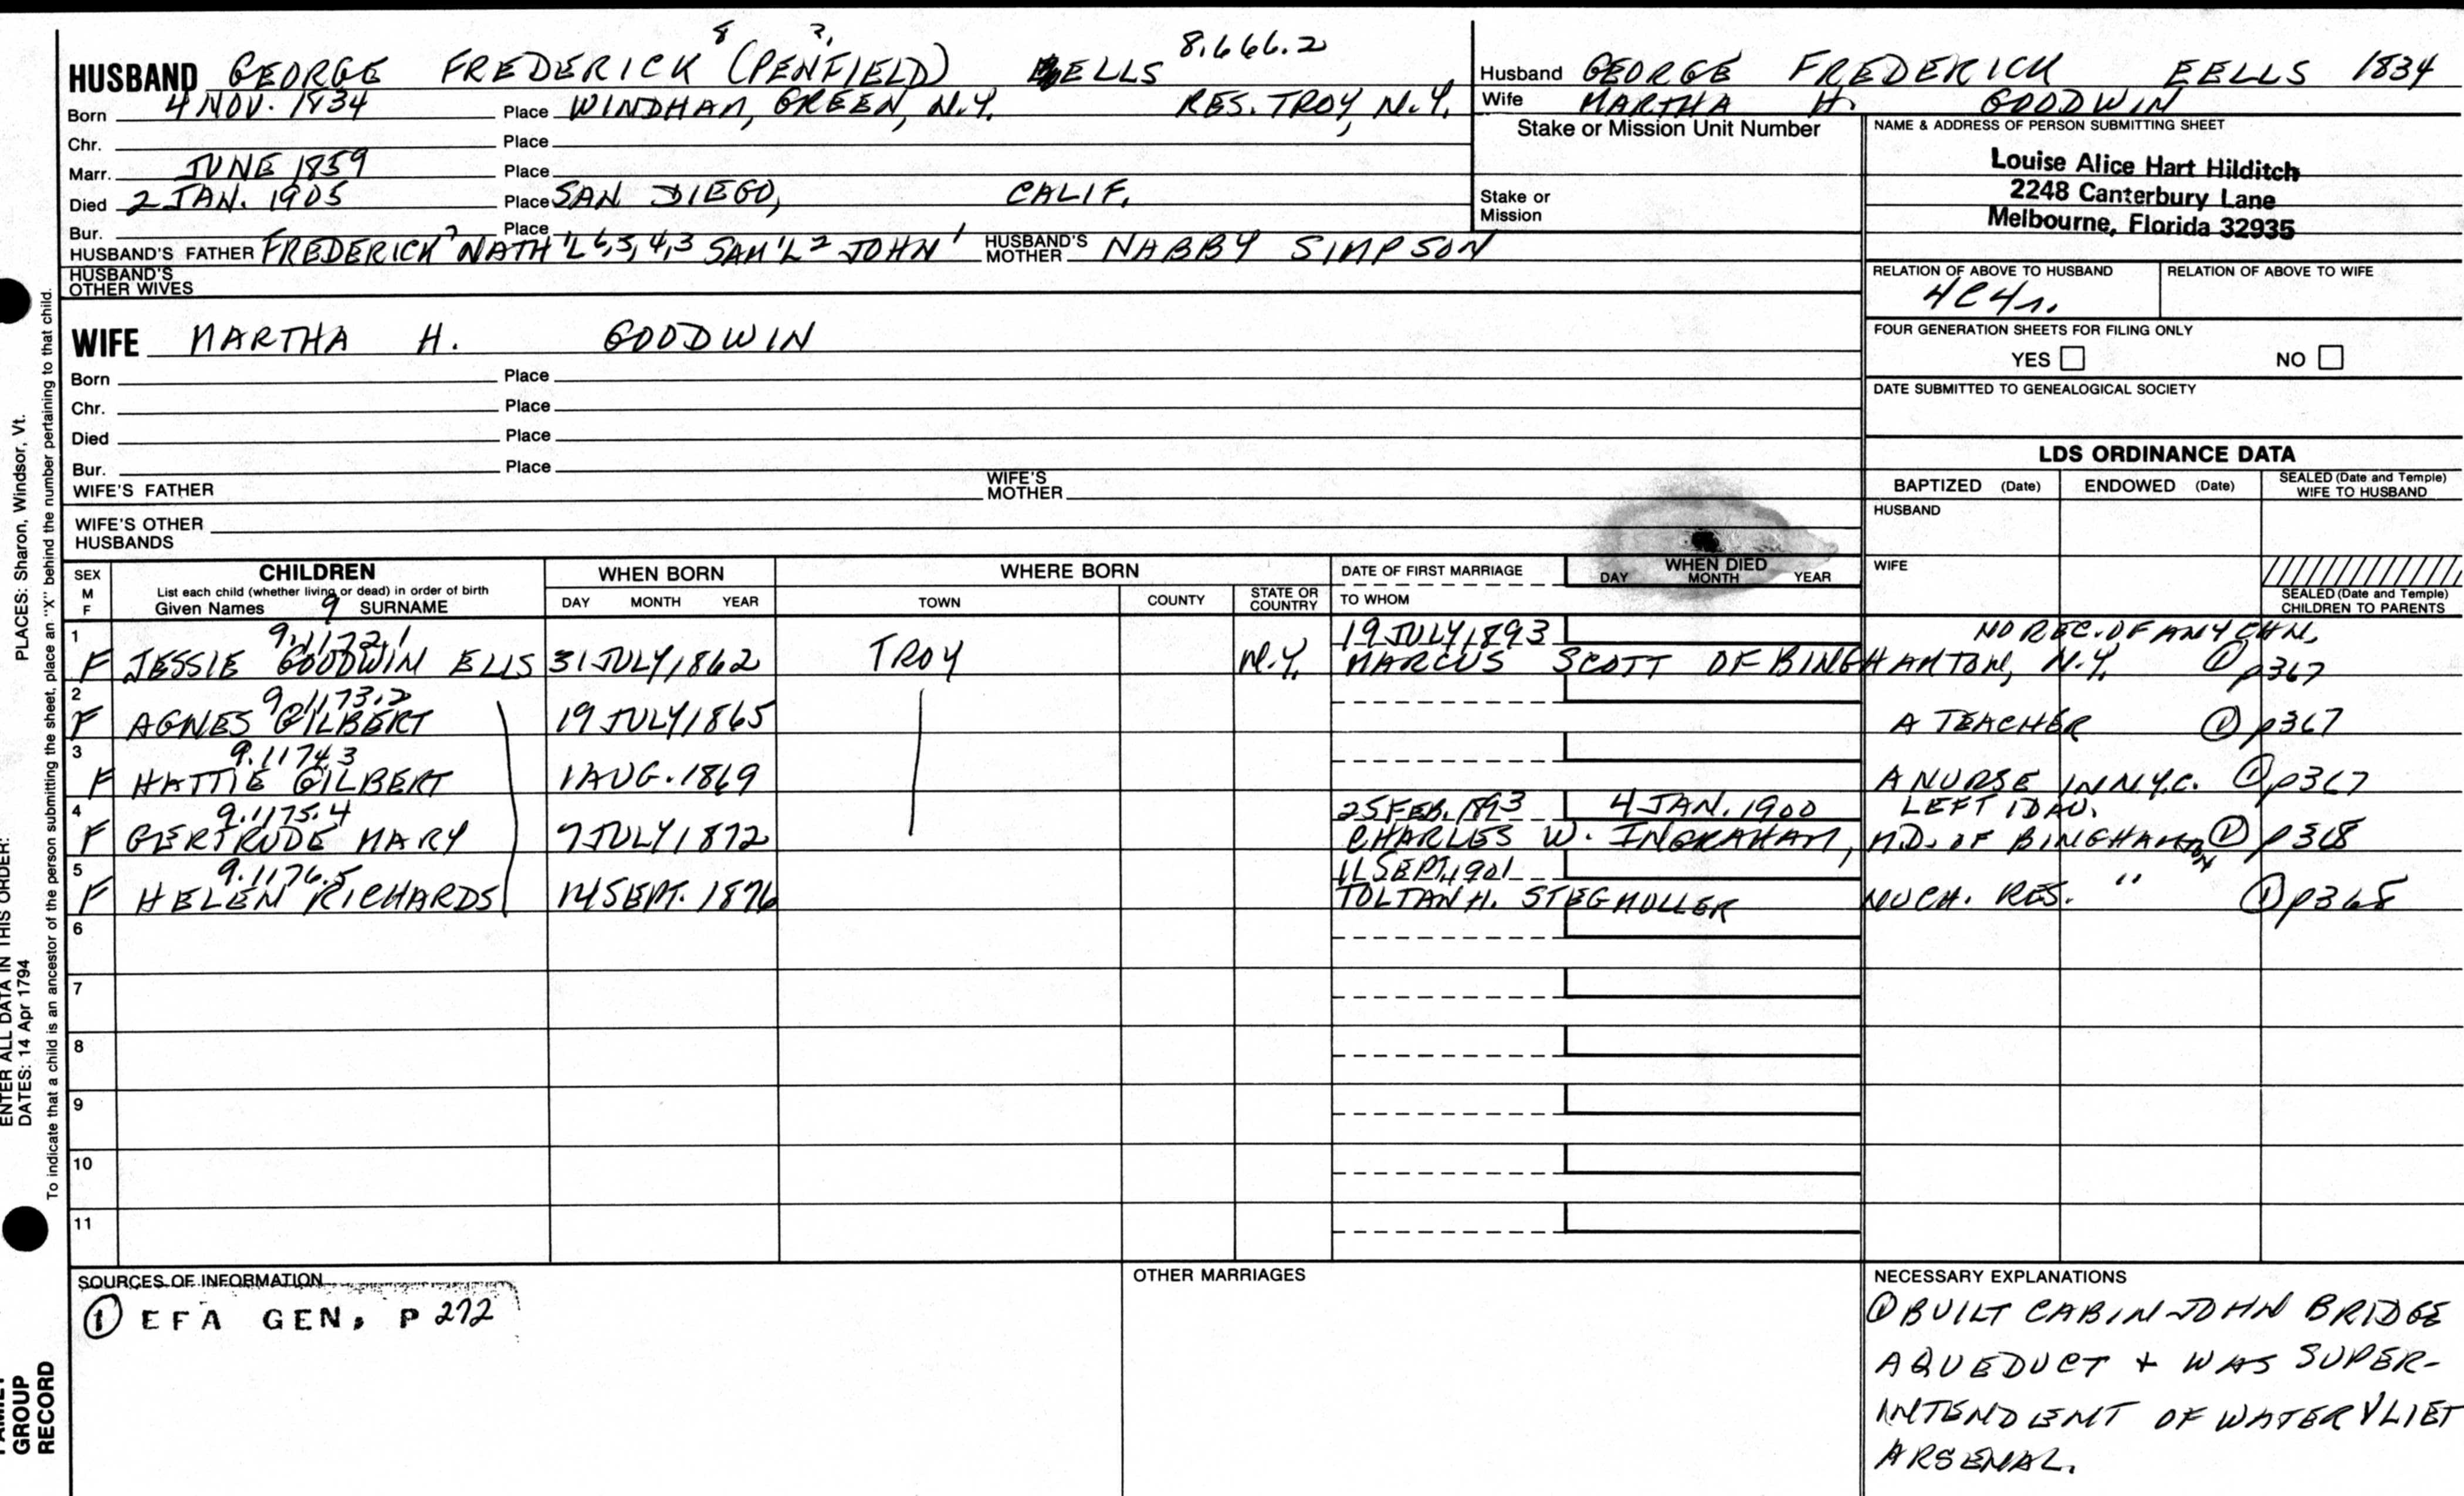 8 ?, 8.666.2
HUSBAND GEORGE FREDERICK (PENFIELD) EELLS
Born 4 NOV. 1834 Place WINDHAM, GREEN, N.Y. RES. TROY, N.Y.
Chr. Place
Marr. JUNE 1859 Place
Died 2 JAN. 1905 Place SAN DIEGO, CALIF.
Bur. Place
HUSBAND'S FATHER FREDERICK 7 NATH'L 6,5,4,3 SAM'L 2 JOHN 1 HUSBAND'S MOTHER NABBY SIMPSON
HUSBAND'S
OTHER WIVES
Husband GEORGE FREDERICK EELLS 1834
Wife MARTHA H. GOODWIN
Stake or Mission Unit Number
Stake or
Mission
NAME & ADDRESS OF PERSON SUBMITTING SHEET
Louise Alice Hart Hilditch
2248 Canterbury Lane
Melbourne, Florida 32935
RELATION OF ABOVE TO HUSBAND RELATION OF ABOVE TO WIFE
4C4r.
FOUR GENERATION SHEETS FOR FILING ONLY
YES NO
DATE SUBMITTED TO GENEALOGICAL SOCIETY
WIFE MARTHA H. GOODWIN
Born Place
Chr. Place
Died Place
Bur. Place
WIFE'S FATHER WIFE'S MOTHER
WIFE'S OTHER
HUSBANDS
LDS ORDINANCE DATA
BAPTIZED (Date) ENDOWED (Date) SEALED (Date and Temple) WIFE TO HUSBAND
HUSBAND
WIFE
SEALED (Date and Temple)
CHILDREN TO PARENTS
SEX
M
F
CHILDREN
List each child (whether living or dead) in order of birth
Given Names 9 SURNAME
WHEN BORN
DAY MONTH YEAR
WHERE BORN
TOWN COUNTY STATE OR COUNTRY
DATE OF FIRST MARRIAGE
TO WHOM
WHEN DIED
DAY MONTH YEAR
1 9.1172.1 19 JULY 1893 NO REC. OF ANY CHN.
F JESSIE GOODWIN ELLS 31 JULY 1862 TROY N.Y. MARCUS SCOTT OF BINGHAMTON, N.Y. ① p367
2 9.1173.2
F AGNES GILBERT 19 JULY 1865 A TEACHER ① p367
3 9.1174.3
F HATTIE GILBERT 1 AUG. 1869 A NURSE IN N.Y.C. ① p367
4 9.1175.4 25 FEB. 1893 4 JAN. 1900 LEFT 1 DAU.
F GERTRUDE MARY 7 JULY 1872 CHARLES W. INGRAHAM, M.D. OF BINGHAMTON ① p368
5 9.1176.5 11 SEPT. 1901
F HELEN RICHARDS 14 SEPT. 1876 TOLTAN H. STEGMULLER MUCH. RES. " ① p368
6
7
8
9
10
11
SOURCES OF INFORMATION
① EFA GEN. P 272
OTHER MARRIAGES
NECESSARY EXPLANATIONS
① BUILT CABIN JOHN BRIDGE
AQUEDUCT + WAS SUPER-
INTENDENT OF WATERVLIET
ARSENAL.
PLACES: Sharon, Windsor, Vt.
ENTER ALL DATA IN THIS ORDER:
DATES: 14 Apr 1794
To indicate that a child is an ancestor of the person submitting the sheet, place an "X" behind the number pertaining to that child.
FAMILY
GROUP
RECORD